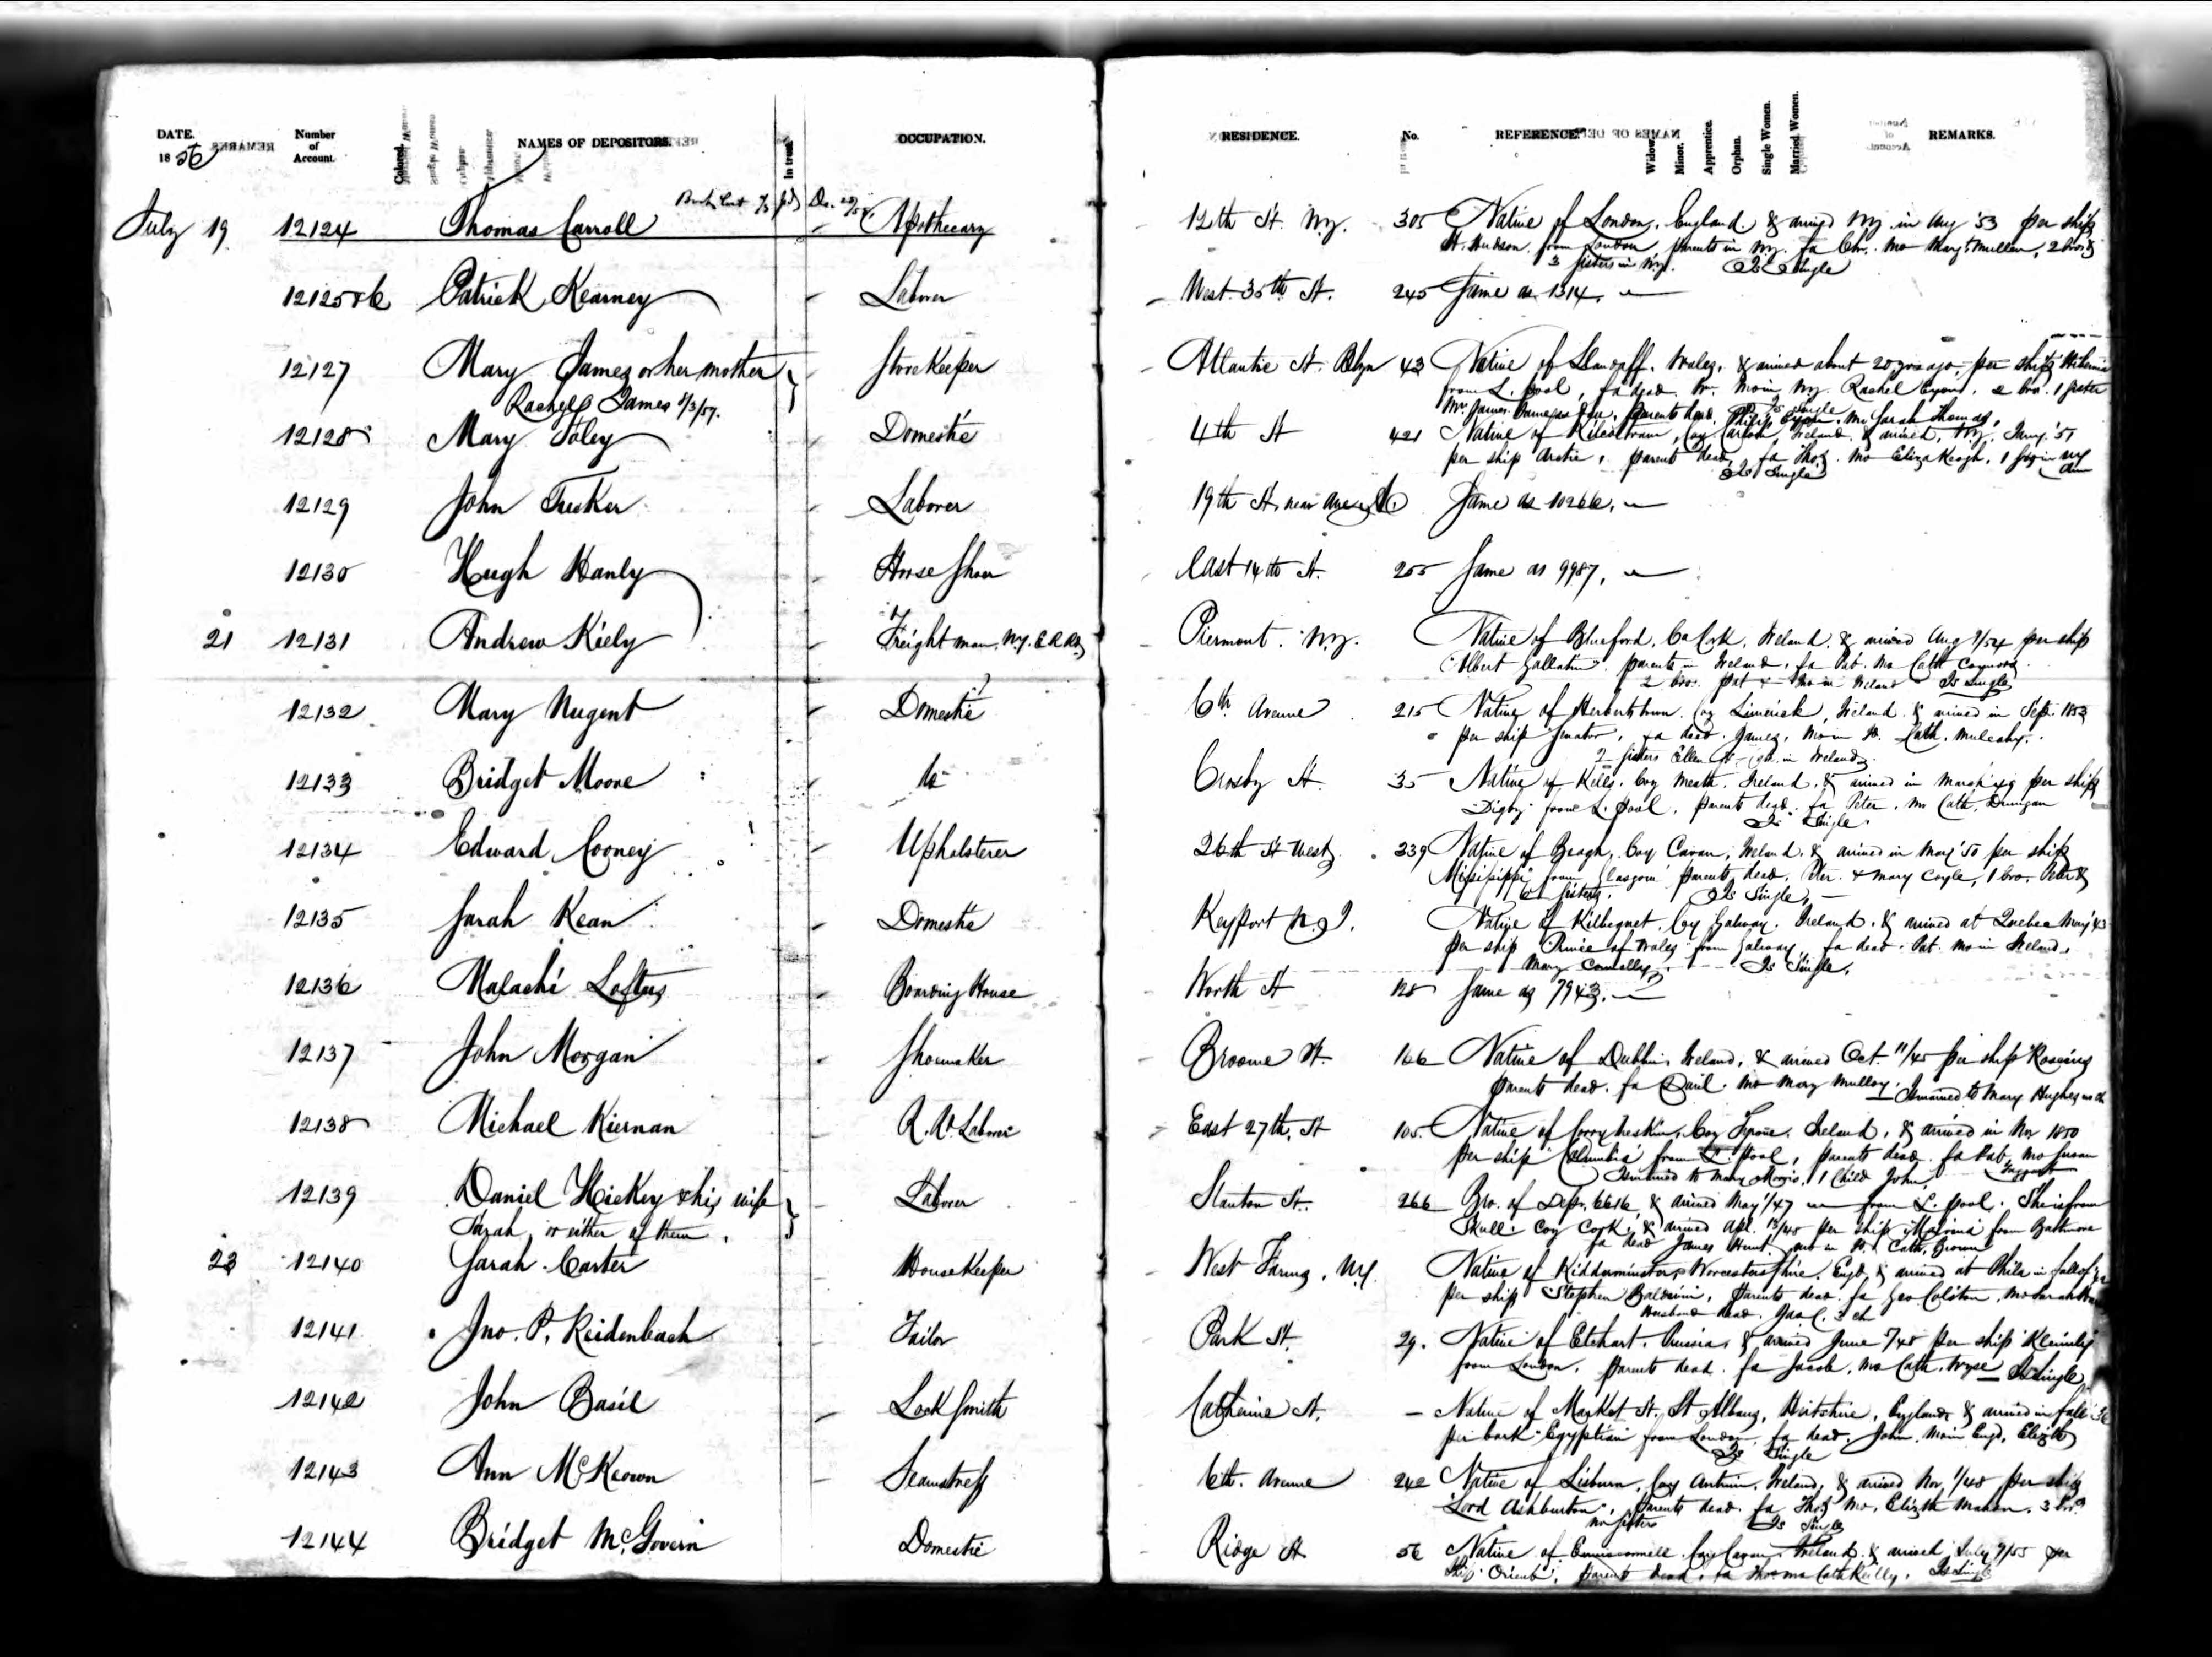 DATE. 1856
Number of Account.
Colored.
NAMES OF DEPOSITORS.
In trust
OCCUPATION.
RESIDENCE.
No.
REFERENCE.
Widow.
Minor.
Apprentice.
Orphan.
Single Women.
Married Women.
REMARKS.
July 19 12124 Thomas Carroll Apothecary 12th St. N.Y. 305 Native of London, England. & arrived N.Y. in Aug '53 per ship
H. Hudson from London parents in N.Y. fa Chr. mo Mary Mullen, 2 bros &
3 sisters in N.Y. Is Single
12125&6 Patrick Kearney Laborer West 35th St. 245 Same as 1314.
12127 Mary James or her mother StoreKeeper Atlantic St. Bklyn 43 Native of Llandaff, Wales, & arrived about 20 yrs ago, per ship Hibernia
Rachel James 8/3/57.
from L. pool, fa dead. Wm. mo in N.Y. Rachel Eynon, 2 bro. 1 sister
Is Single
parents dead, Eynon, mo Sarah Thomas,
12128 Mary Foley Domestic 4th St 421 Native of Coy Carlow, Ireland & arrived, N.Y. Jany. '51
per ship Arctic, parents dead, fa Thos. mo Eliza Keogh, 1 sis in
Is Single
12129 John Tucker Laborer 19th St. near Avenue A. Same as 10266.
12130 Hugh Hanly Horse Shoer East 14th St. 255 Same as 9987.
21 12131 Andrew Kiely Freight man. N.Y. E. R Rd. Piermont. N.Y. Native of Co Cork, Ireland. & arrived Aug 9/54 per ship
Albert Gallatin. parents in Ireland. fa Pat. mo Cath Connors
2 bros. Pat & in Ireland Is Single
12132 Mary Nugent Domestic 6th. Avenue 215 Native of Herbertstown. Coy Limerick, Ireland. & arrived in Sep. 1853
per ship Senator, fa dead. James, mo in N. Cath. Mulcahy.
2 sisters Ellen & in Ireland
12133 Bridget Moore Do Crosby St. 35 Native of Kells, Coy Meath, Ireland, & arrived in March '49 per ship
Digby from L. pool, parents dead. fa Peter. mo Cath. Dunigan
Is Single
12134 Edward Cooney Upholsterer 26th St West 339 Native of Coy Cavan, Ireland, & arrived in May '50 per ship
Missisippi from Glasgow parents dead. Peter & Mary Coyle, 1 bro. Peter &
sisters. Is Single
12135 Sarah Kean Domestic Keyport N.J. Native of Kilbegnet. Coy Galway. Ireland. & arrived at Quebec May '43
per ship Prince of Wales from Galway fa dead. Pat. mo in Ireland.
Mary Connally Is Single.
12136 Malachi Loftus Boarding House Worth St Same as 7943.
12137 John Morgan Shoemaker Broome St. 166 Native of Dublin, Ireland, & arrived Oct. 11/45 per ship Roscius
parents dead. fa mo Mary Mulloy. Is married to Mary Hughes no ch
12138 Michael Kiernan R. Rd Laborer East 27th. St 105. Native of Coy Tyrone. Ireland, & arrived in Nov 1850
per ship Columbia from L. pool, parents dead. fa Pat. mo Susan
Is married to Mary Morris, 1 Child John. Taggart
12139 Daniel Hickey & his wife Laborer Stanton St. 266 Bro. of Depr. 6616, & arrived May 1/47 from L. pool. She is from
Sarah, or either of them.
Skull. Coy Cork, & arrived Apl. 15/48 per ship from Baltimore
fa dead James Hunt, mo in N. Cath. Brown
23 12140 Sarah Carter HouseKeeper West Farms, N.Y. Native of Kidderminster, Worcestershire. Engd. & arrived at Phila in fall of
per ship Stephen Baldwin, Parents dead. fa Geo Colston. mo Sarah
Husband dead. Jas C. 3 ch
12141 Jno. P. Reidenbach Tailor Park St. 29. Native of Prussia, & arrived June 5/48 per ship
from London. Parents dead. fa Jacob, mo Cath. Wyse Is Single
12142 John Basil LockSmith Catherine St. - Native of Market St. St Albans, England, & arrived in fall
per bark Egyptian from London, fa dead. John. mo in Engd, Elizth
Is Single
12143 Ann McKeown Seamstress 6th. Avenue 242 Native of Lisburn, Coy Antrim, Ireland, & arrived Nov. 1/48 per ship
Lord Ashburton, Parents dead. fa Thos. mo. Elizth Mahon. 3 bros
no sisters Is Single
12144 Bridget McGovern Domestic Ridge St 56 Native of Coy Cavan, Ireland & arrived July 9/55 per
Ship Orient, parents dead, fa mo Cath Reilly. Is Single